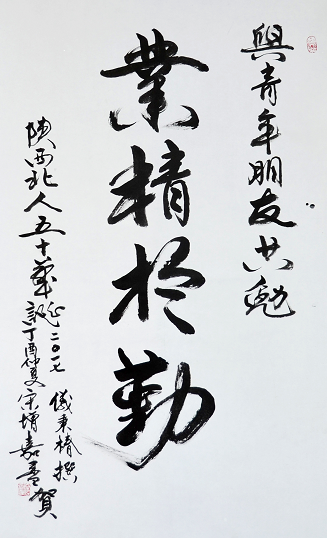 與青年朋友共勉
業精於勤
陝西北人五十華誕二〇一七
儀秉椿撰
丁酉仲夏宋增嘉賀